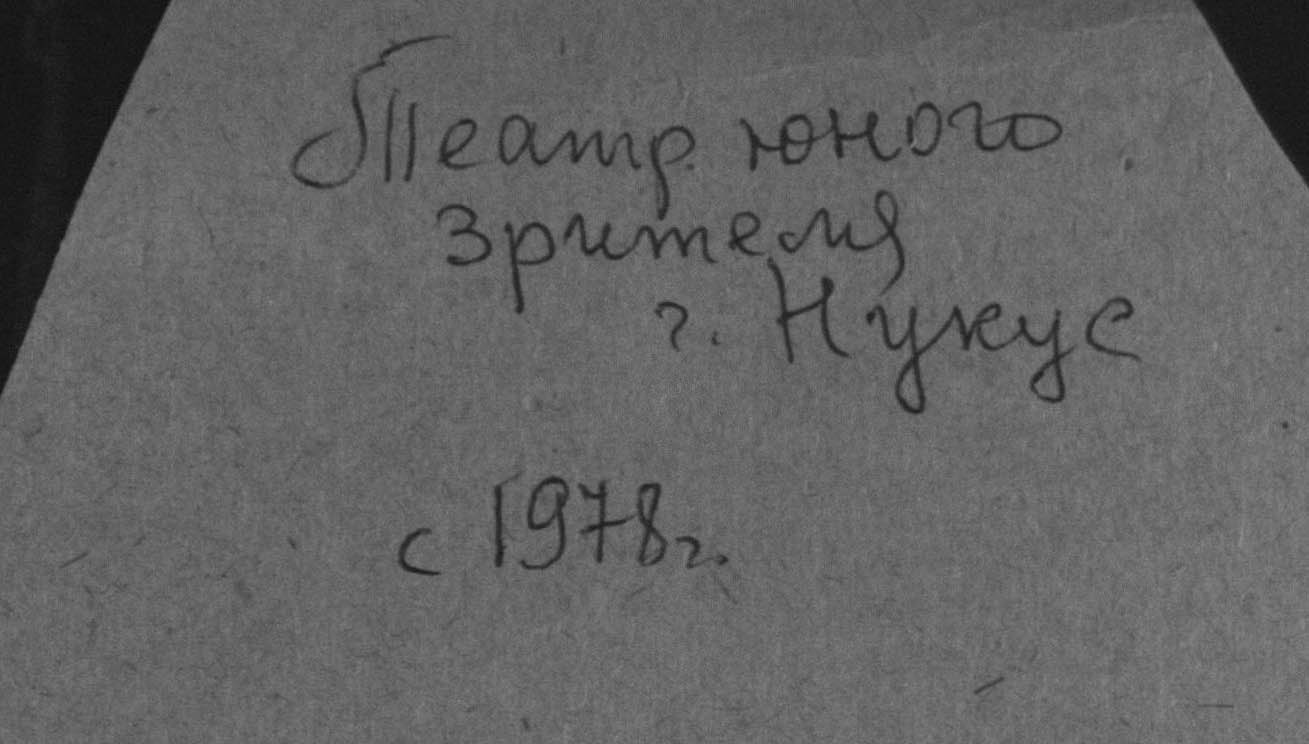 Театр юного
зрителя
г. Нукус
с 1978г.